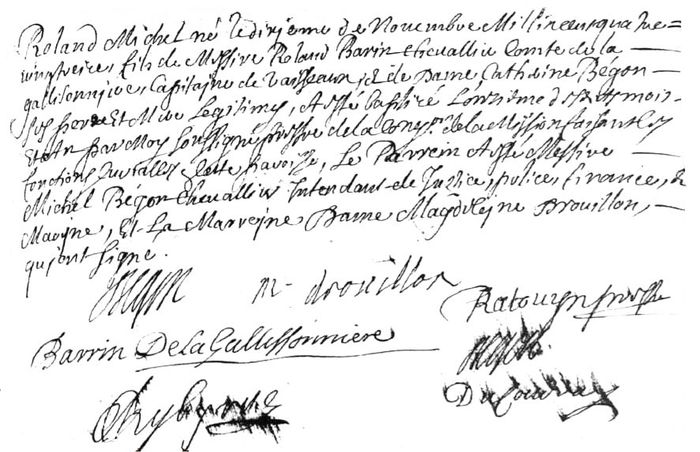 Roland Michel né le dixieme de Novembre Mil six cens quatre=
vingt treize, fils de Messire Roland Barin chevallier Comte de la —
gallissonniere, Capitaine de vaisseaux, et de Dame Catherine Bégon —
ses pere Et Mere Legitimes, A esté baptisé Lonzieme desdits mois
Et an par Moy soussigné prestre de la Cong.on de la Mission faisant les
fonctions Curialles de cette paroisse, Le Parrein A esté Messire —
Michel Bégon Chevallier Intendant de Justice, police, finance, &
Marine, Et La Marreine Dame Magdeleine Drouillon, —
qui ont signe.
Begon m. drouillon
Ratouyn prestre
Barrin De La Gallissonniere